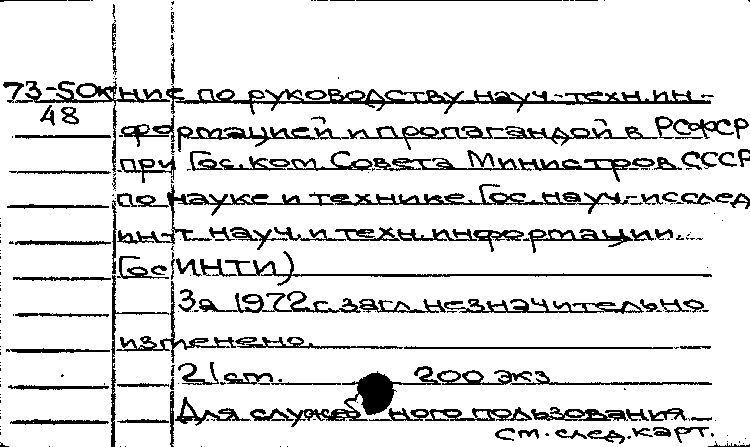 73-50к ние по руководству науч.-техн. ин-
48 формацией и пропагандой в РСФСР
при Гос. ком. Совета Министров СССР
по науке и технике. Гос. науч.-исслед.
ин-т науч. и техн. информации.
ГосИНТИ)
За 1972 г. загл. незначительно
изменено.
21 см. 200 экз
Для служебного пользования
см. след. карт.